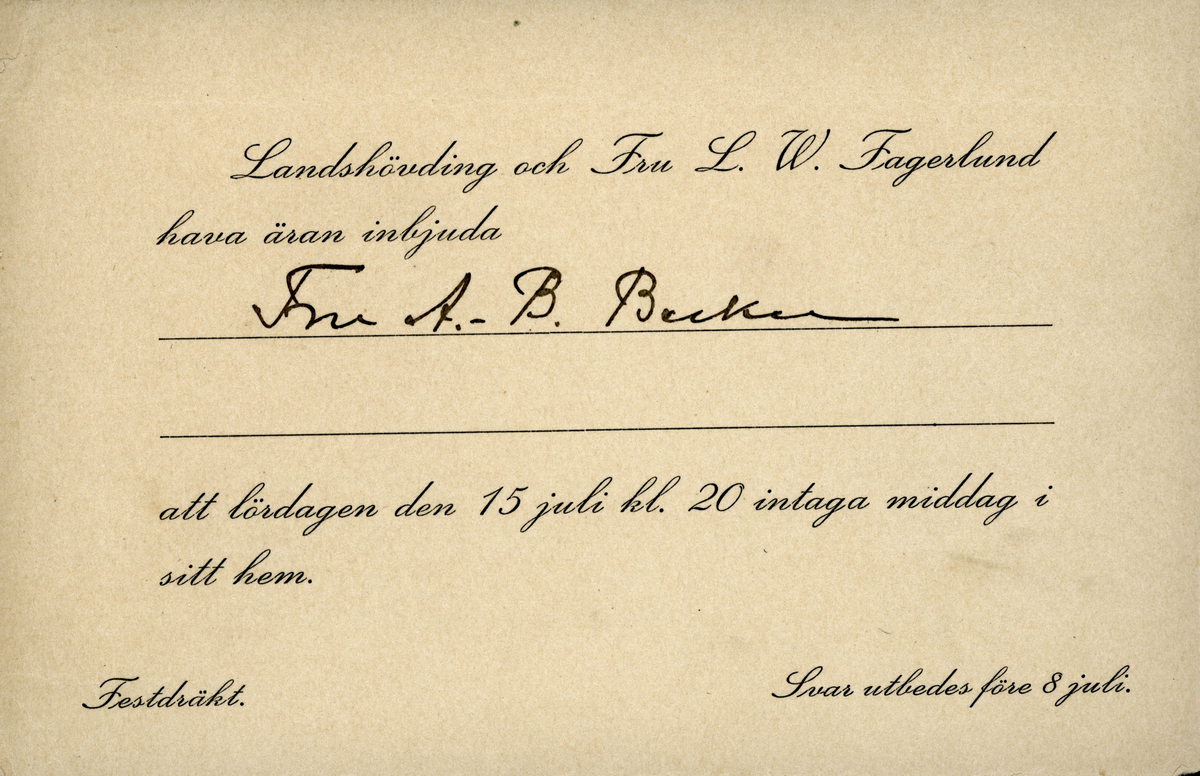 Landshövding och Fru L. W. Fagerlund
hava äran inbjuda
Fru A.-B. Backer
att lördagen den 15 juli kl. 20 intaga middag i
sitt hem.
Festdräkt.
Svar utbedes före 8 juli.